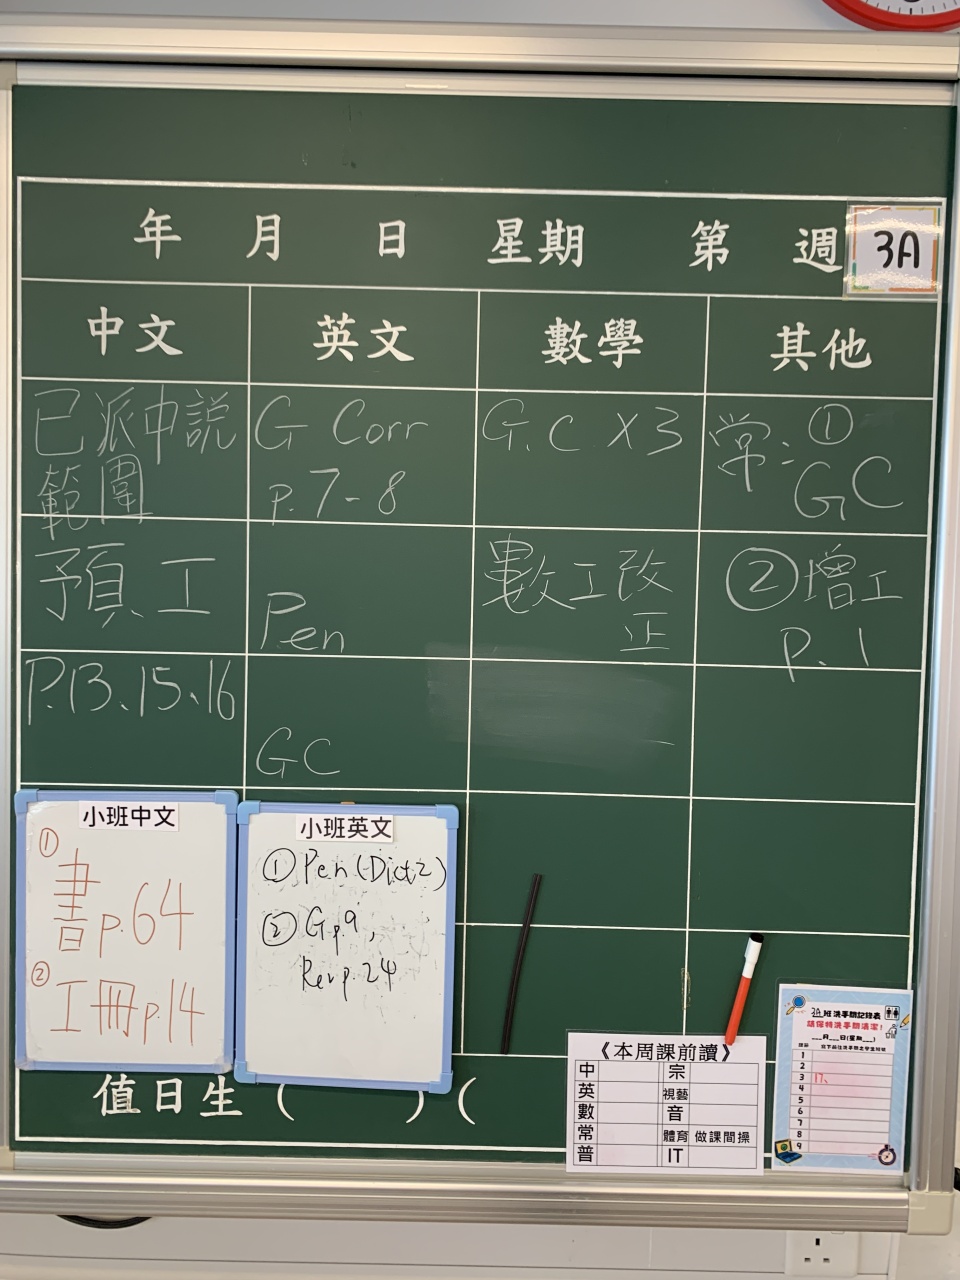 年 月 日 星期 第 週
3A
中文 英文 數學 其他
已派中説
範圍
G Corr
p.7-8
G.C ×3
常: ①
GC
預工
Pen
數工改
正
②增工
P.1
P.13、15、16
GC
小班中文
①
書p.64
②
工冊p.14
小班英文
①Pen(Dict2)
②Gp9,
Rev p.24
值日生 ( ) (
《本周課前讀》
中 宗
英 視藝
數 音
常 體育 做課間操
普 IT
3A班洗手間記錄表
請保持洗手間清潔!
___月___日(星期___)
1
2
3 17、
4
5
6
7
8
9